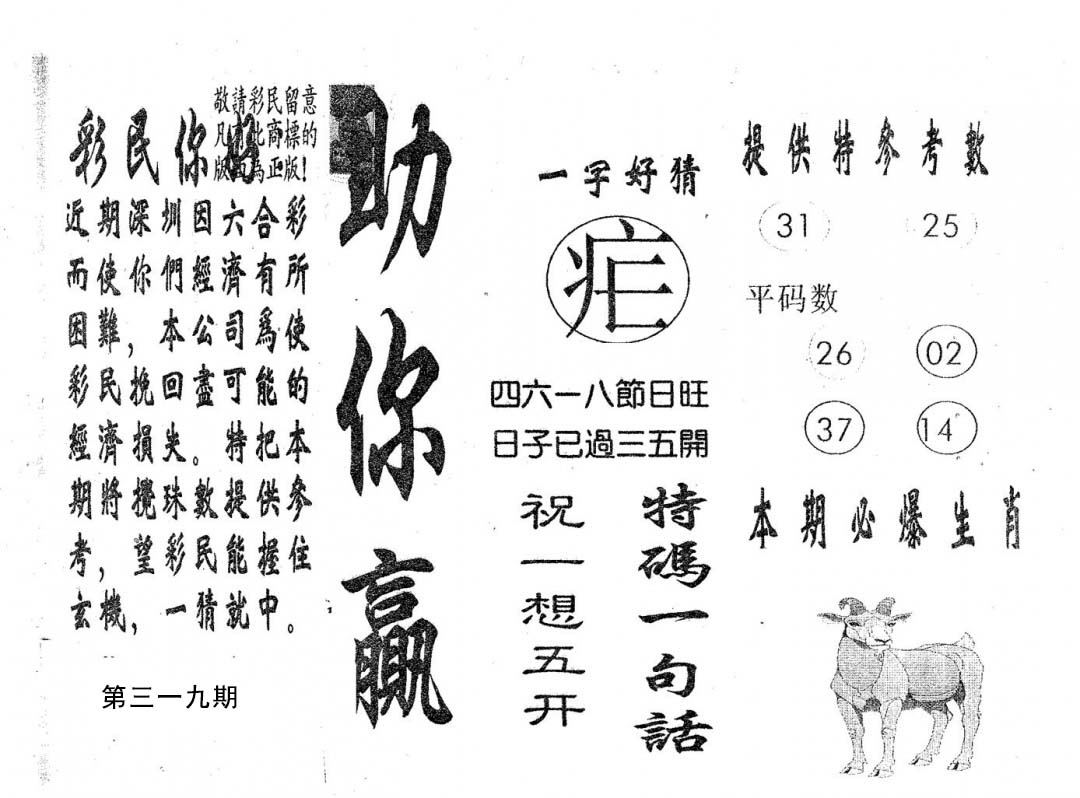 敬請彩民留意
凡有此商標的
版面為正版！
彩民你好
近期深圳因六合彩
而使你們經濟有所
困難，本公司爲使
彩民挽回盡可能的
經濟損失。特把本
期將攪珠數提供參
考，望彩民能握住
玄機，一猜就中。
第三一九期
助你贏
一字好猜
四六一八節日旺
日子已過三五開
特碼一句話
祝一想五开
提供特參考數
31 25
平码数
26 02
37 14
本期必爆生肖